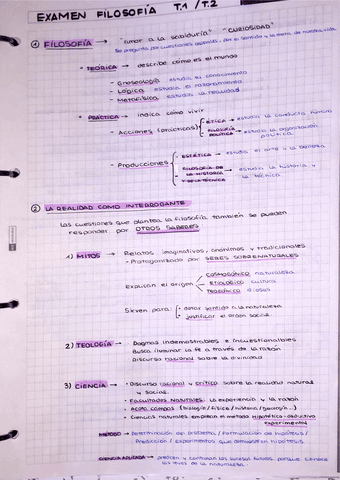 EXAMEN FILOSOFÍA T.1 / T.2
① FILOSOFÍA → "amor a la sabiduría" "CURIOSIDAD"
Se pregunta por cuestiones del sentido y la meta de nuestra vida
- TEÓRICA → describe cómo es el mundo
- Gnoseología estudia el conocimiento
- Lógica estudia el razonamiento
- Metafísica estudia la realidad
- PRÁCTICA → indica cómo vivir
- Acciones (prácticas)
- ÉTICA → estudia la conducta humana
- FILOSOFÍA POLÍTICA → estudia la organización política
- Producciones
- ESTÉTICA → estudia el arte y la belleza
- FILOSOFÍA DE LA HISTORIA Y DE LA TÉCNICA → estudia la historia y la técnica
② LA REALIDAD COMO INTERROGANTE
Las cuestiones que plantea la filosofía también se pueden
responder por OTROS SABERES
1) MITOS → Relatos imaginativos, anónimos y tradicionales
- Protagonizado por SERES SOBRENATURALES
Explican el origen
COSMOGÓNICO naturaleza
ETIOLÓGICO cultura
TEOGÓNICO diosas
Sirven para:
- dotar sentido a la naturaleza
- justificar el orden social
2) TEOLOGÍA → Dogmas indemostrables e incuestionables
Busca iluminar la fe a través de la razón
Discurso racional sobre la divinidad
3) CIENCIA → Discurso racional y crítico sobre la realidad natural
y social.
- Facultades naturales: la experiencia y la razón
- Acota campos (biología/física/historia/geología...)
- Ciencias naturales emplean el método hipotético-deductivo
experimental
MÉTODO → Determinación del problema / Formulación de hipótesis /
Predicción / Experimentos que demuestran hipótesis.
CIENCIA APLICADA → predecen y controlan los sucesos futuros porque conocen
las leyes de la naturaleza.